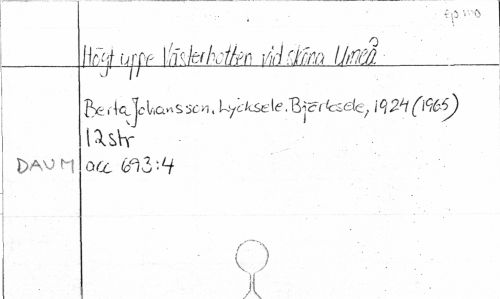 Högt uppe Västerbotten vid sköna Umeå
Berta Johansson, Lycksele. Björksele, 1924 (1965)
12 str
DAUM acc 693:4